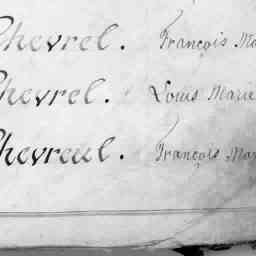 Chevrel. François Ma
Chevrel. Louis Marie
Chevreul. François Mar